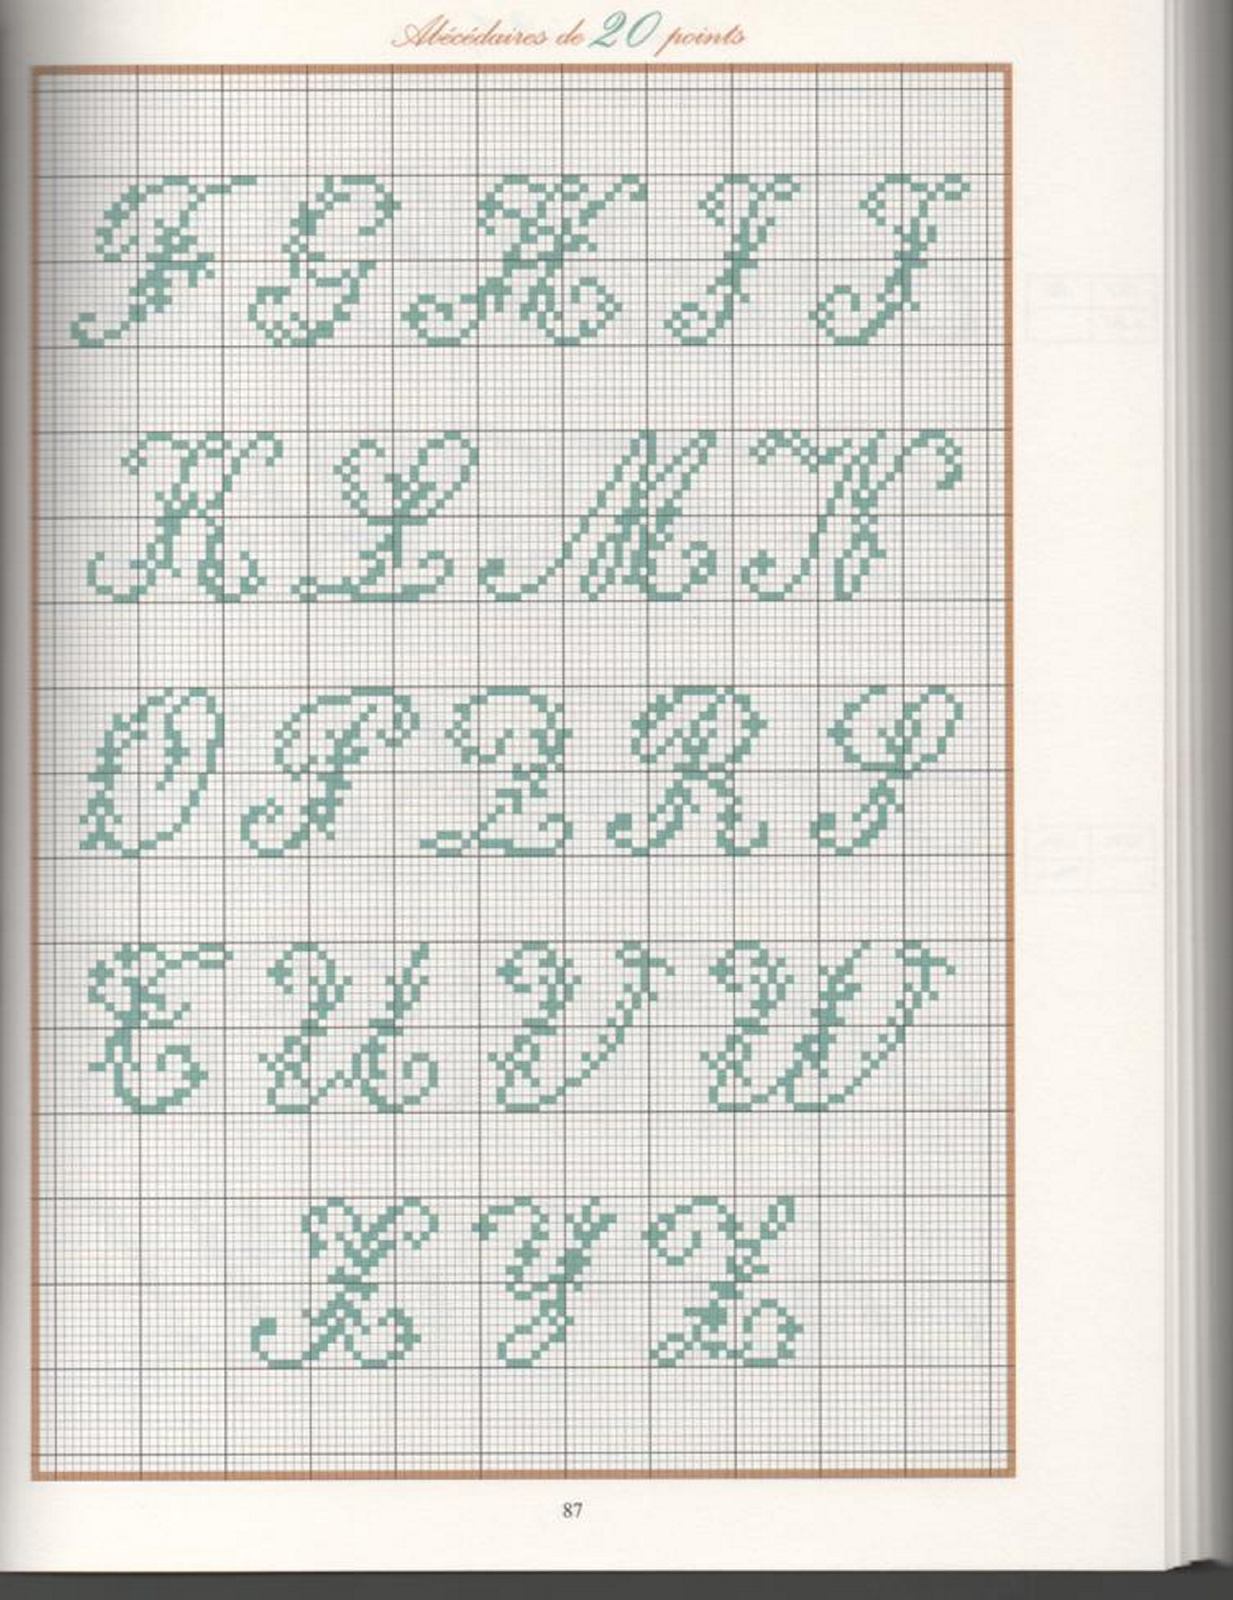 Abécédaires de 20 points
F G H I J
K L M N
O P Q R S
T U V W
X Y Z
87